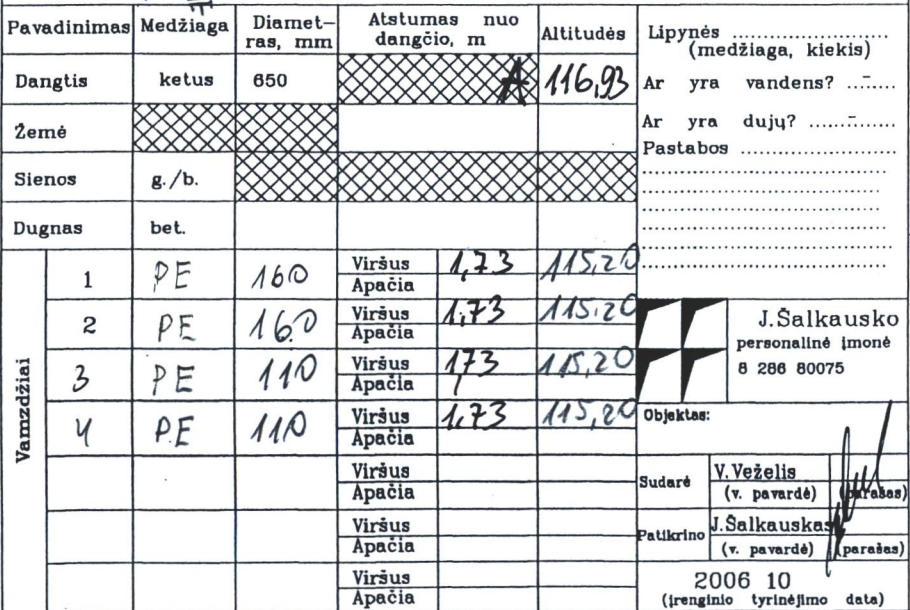 Pavadinimas Medžiaga Diamet-ras, mm Atstumas nuo dangčio, m Altitudės
Dangtis ketus 650 A 116,93
Žemė
Sienos g./b.
Dugnas bet.
Vamzdžiai
1 PE 160 Viršus 1,73 115,20
Apačia
2 PE 160 Viršus 1,73 115,20
Apačia
3 PE 110 Viršus 1,73 115,20
Apačia
4 PE 110 Viršus 1,73 115,20
Apačia
Viršus
Apačia
Viršus
Apačia
Viršus
Apačia
Lipynės ....................
(medžiaga, kiekis)
Ar yra vandens? ..-....
Ar yra dujų? ......-....
Pastabos ....................
J.Šalkausko
personalinė įmonė
8 286 80075
Objektas:
Sudarė V.Veželis
(v. pavardė) (parašas)
Patikrino J.Šalkauskas
(v. pavardė) (parašas)
2006 10
(įrenginio tyrinėjimo data)